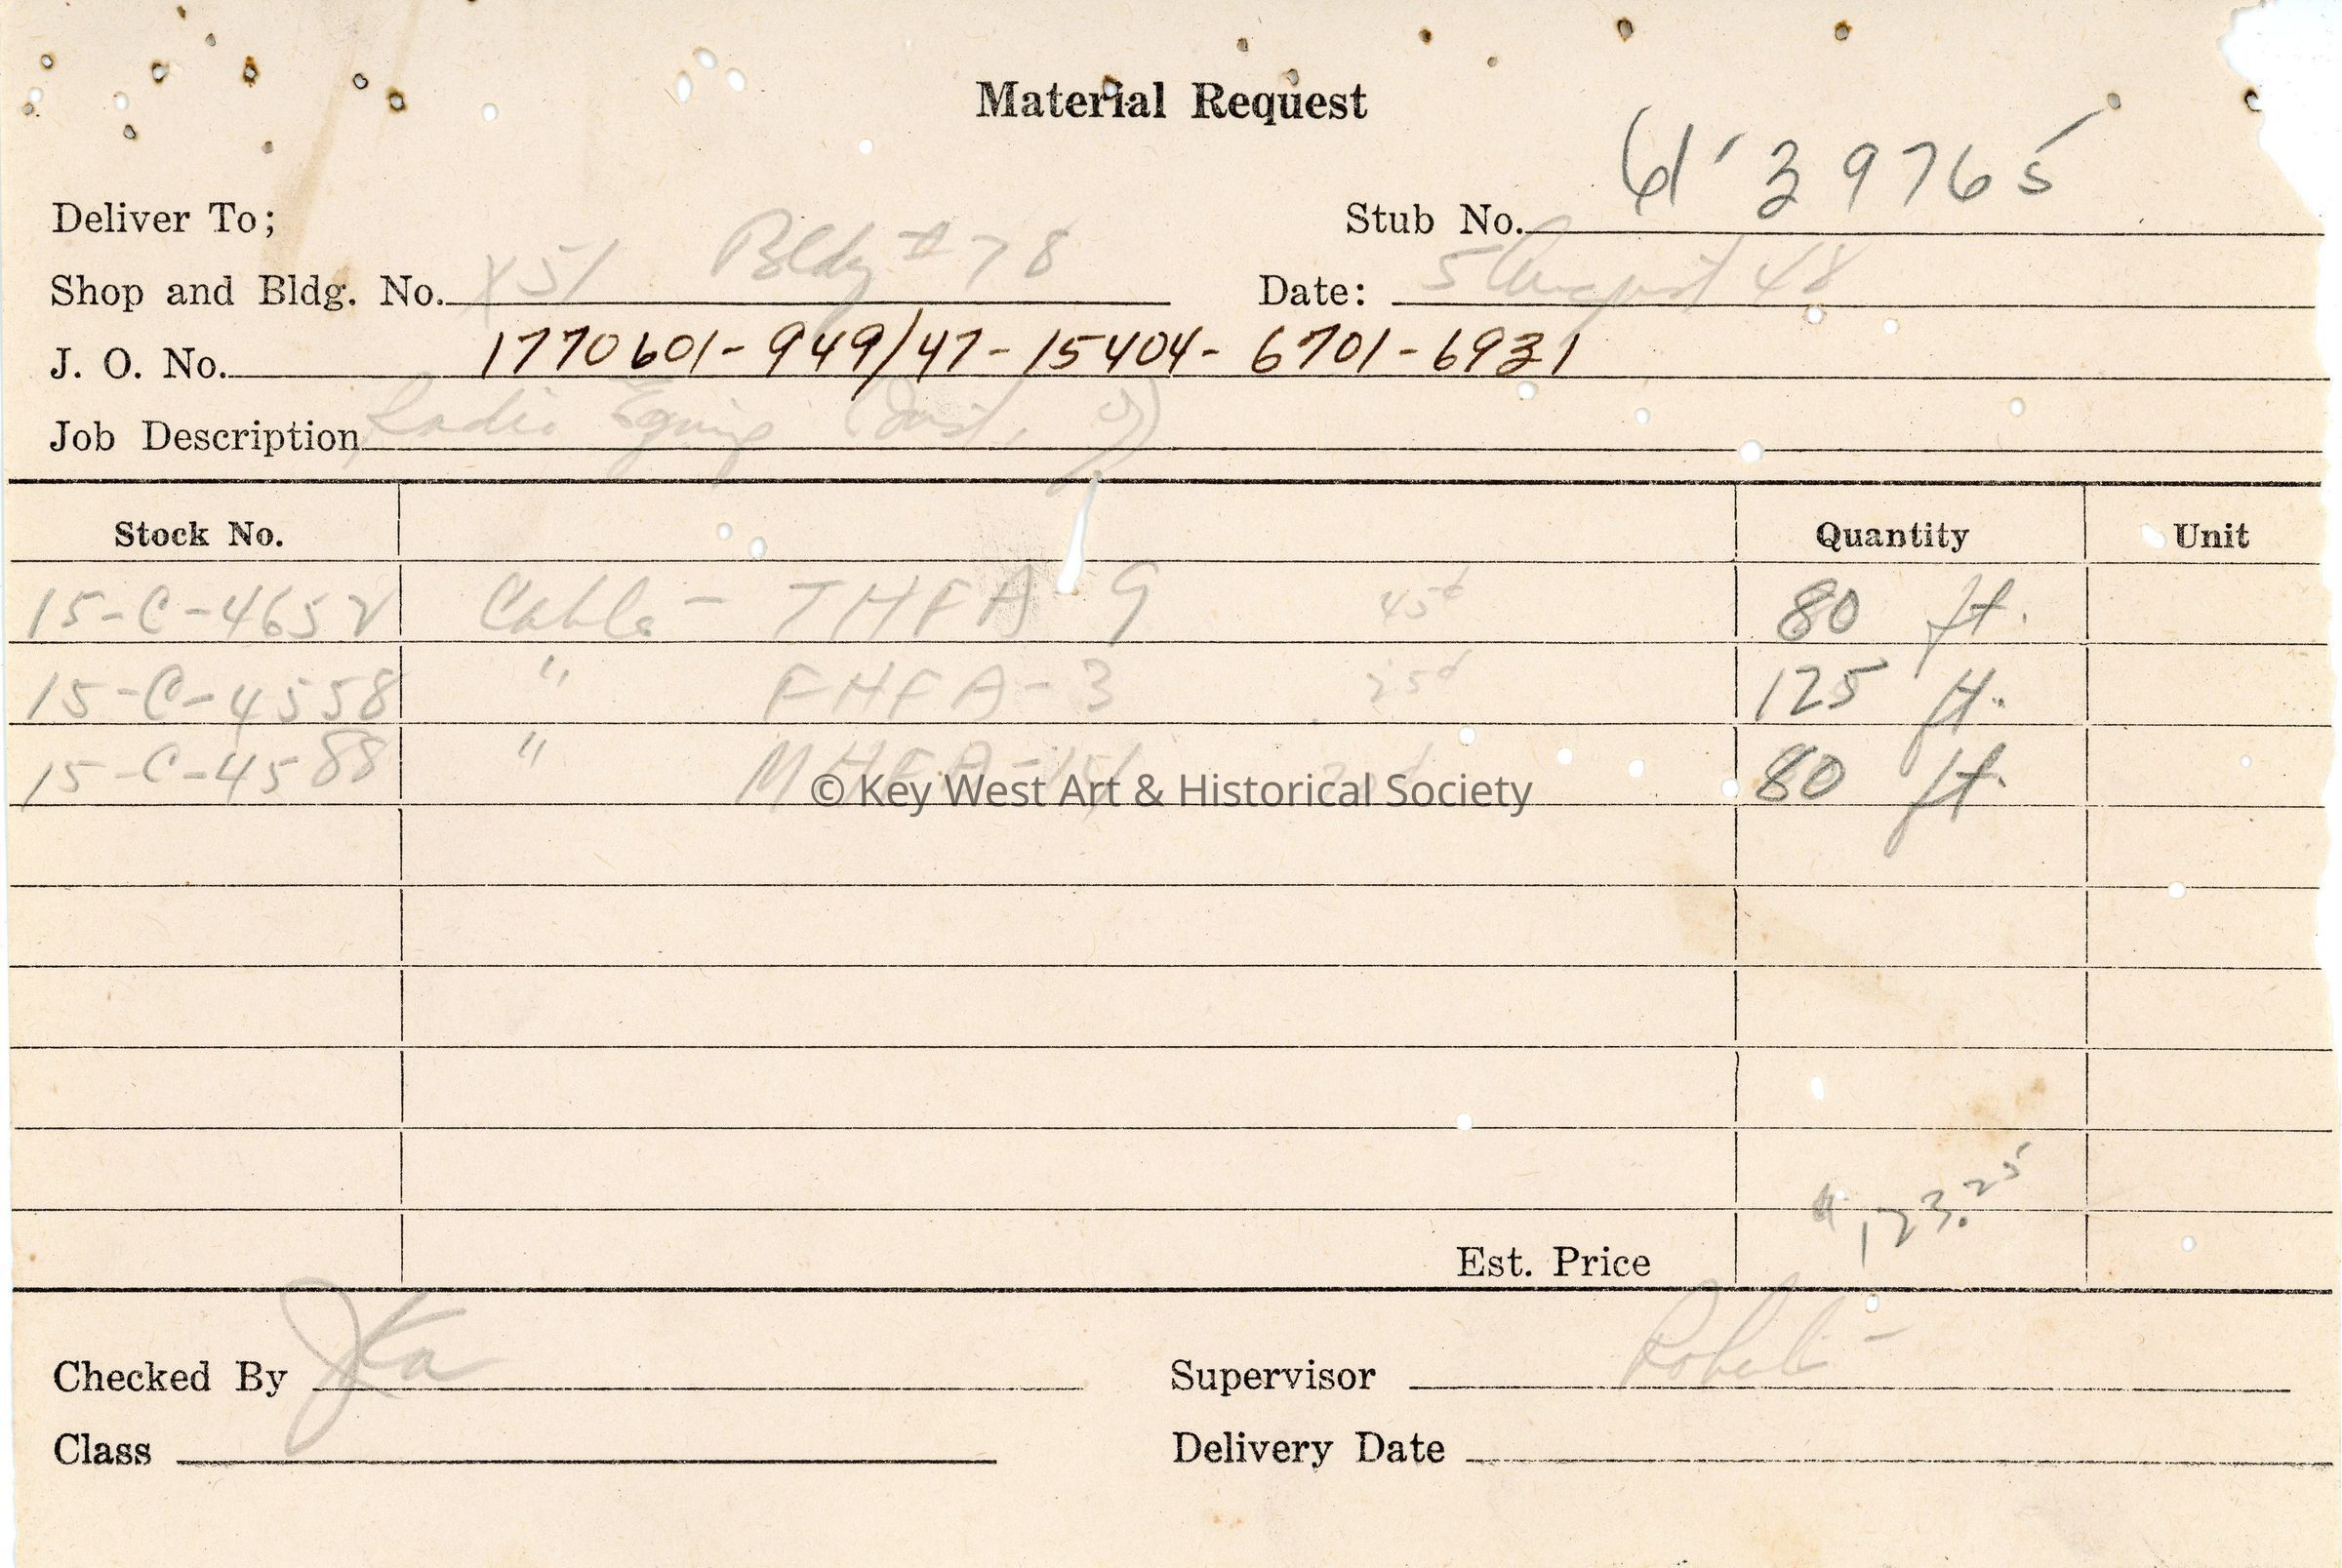 Material Request
Deliver To; Stub No. 61' 39765
Shop and Bldg. No. X51 Bldg #78 Date: 5 August 48
J. O. No. 1770601-949/47-15404-6701-6931
Job Description Radio Equip
Stock No. Quantity Unit
15-C-4652 Cable - THFA 9 45¢ 80 ft.
15-C-4558 " FHFA-3 25¢ 125 ft.
15-C-4588 " MHFA- 80 ft.
© Key West Art & Historical Society
Est. Price $123.25
Checked By Supervisor
Class Delivery Date